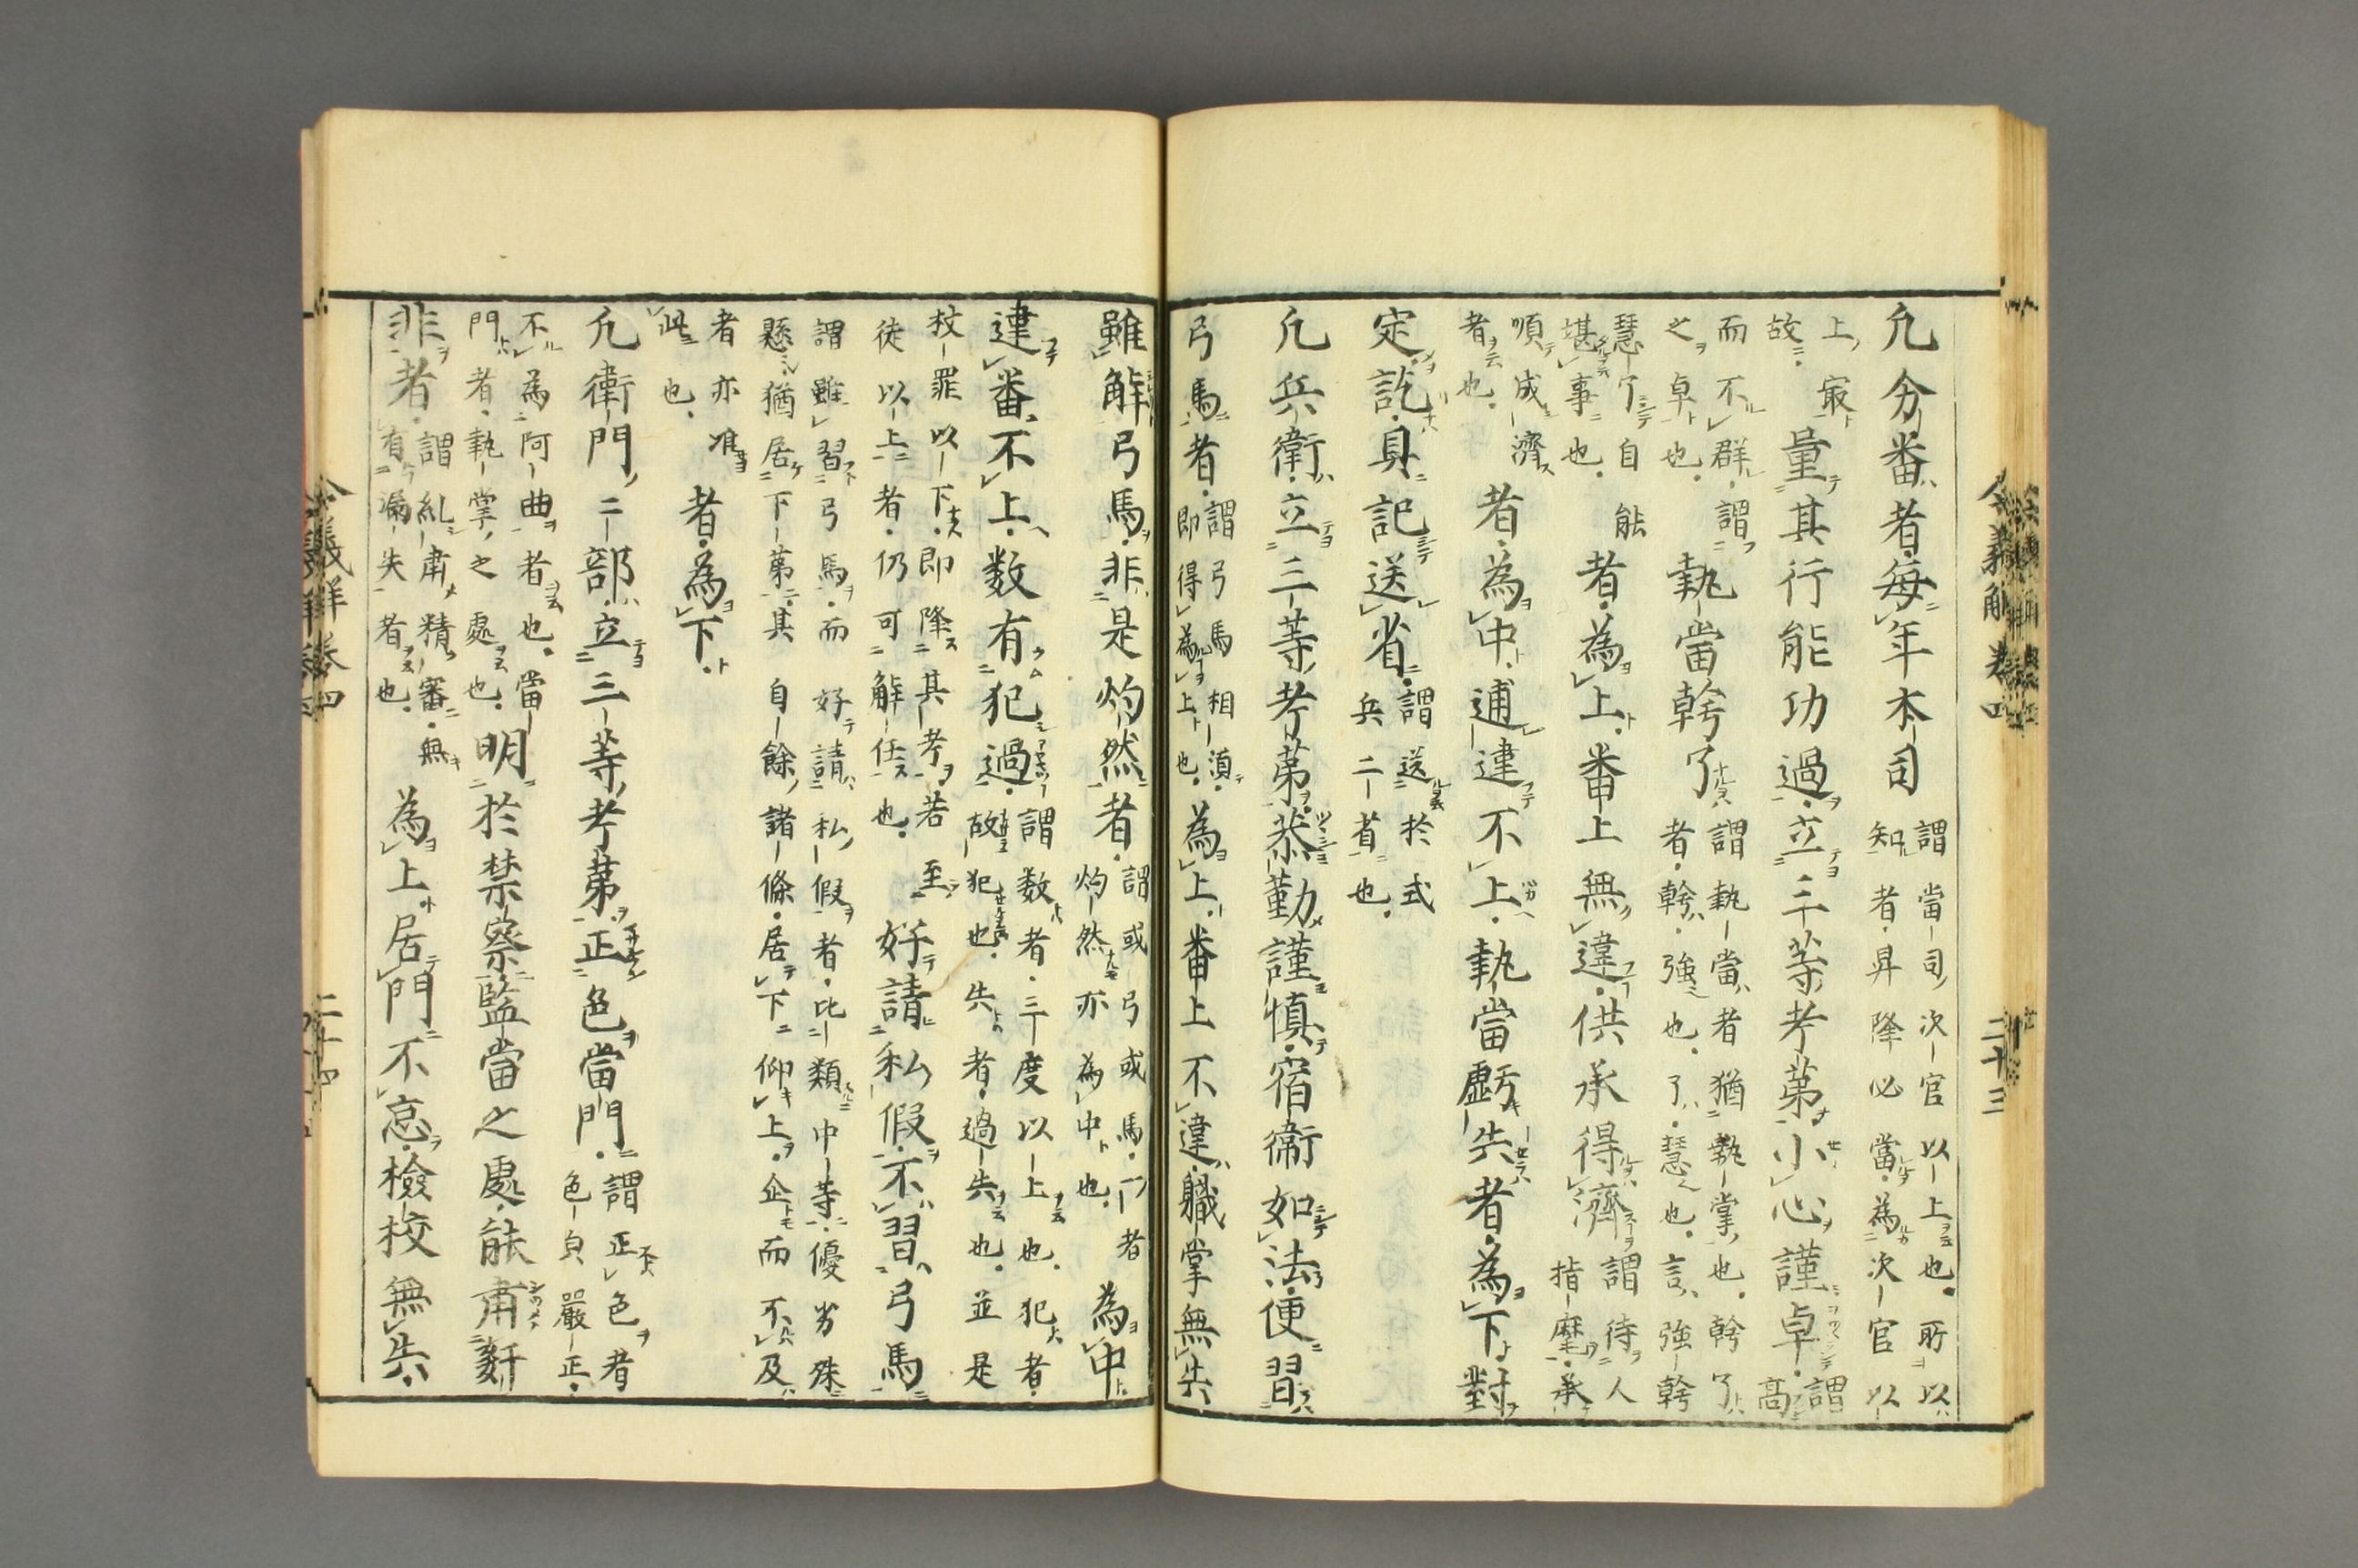 令義解卷四 二十三
凢分番者每年本司謂當司次官以上也所以知者昇降必當為次官以
上㝡故量其行能功過立三等考第小心謹卓謂高
而不群謂之卓也執當幹了謂執當者猶執掌也幹了者幹強也了慧也言強幹
慧了自能堪事也者為上番上無違供承得濟謂待人指麾承
順成濟者也者為中逋違不上執當虧失者為下對
定訖具記送省謂送於式兵二省也
凢兵衛立三等考第恭勤謹慎宿衛如法便習
弓馬者謂弓馬相湏即得為上也為上番上不違職掌無失
雖解弓馬非是灼然者謂或弓或馬一者灼然亦為中也為中
違番不上数有犯過謂数者三度以上也犯者故犯也失者過失也並是
杖罪以下即降其考若至徒以上者仍可解任也好請私假不習弓馬
謂雖習弓馬而好請私假者比類中等優劣殊懸猶居下第其自餘諸條居下仰上企而不及
者亦准此也者為下
凢衛門二部立三等考第正色當門謂正色者色負嚴正
不為阿曲者也當門者執掌之處也明於禁察監當之處能肅姧
非者謂糺肅精審無有漏失者也為上居門不怠檢校無失
令義解卷四 二十四